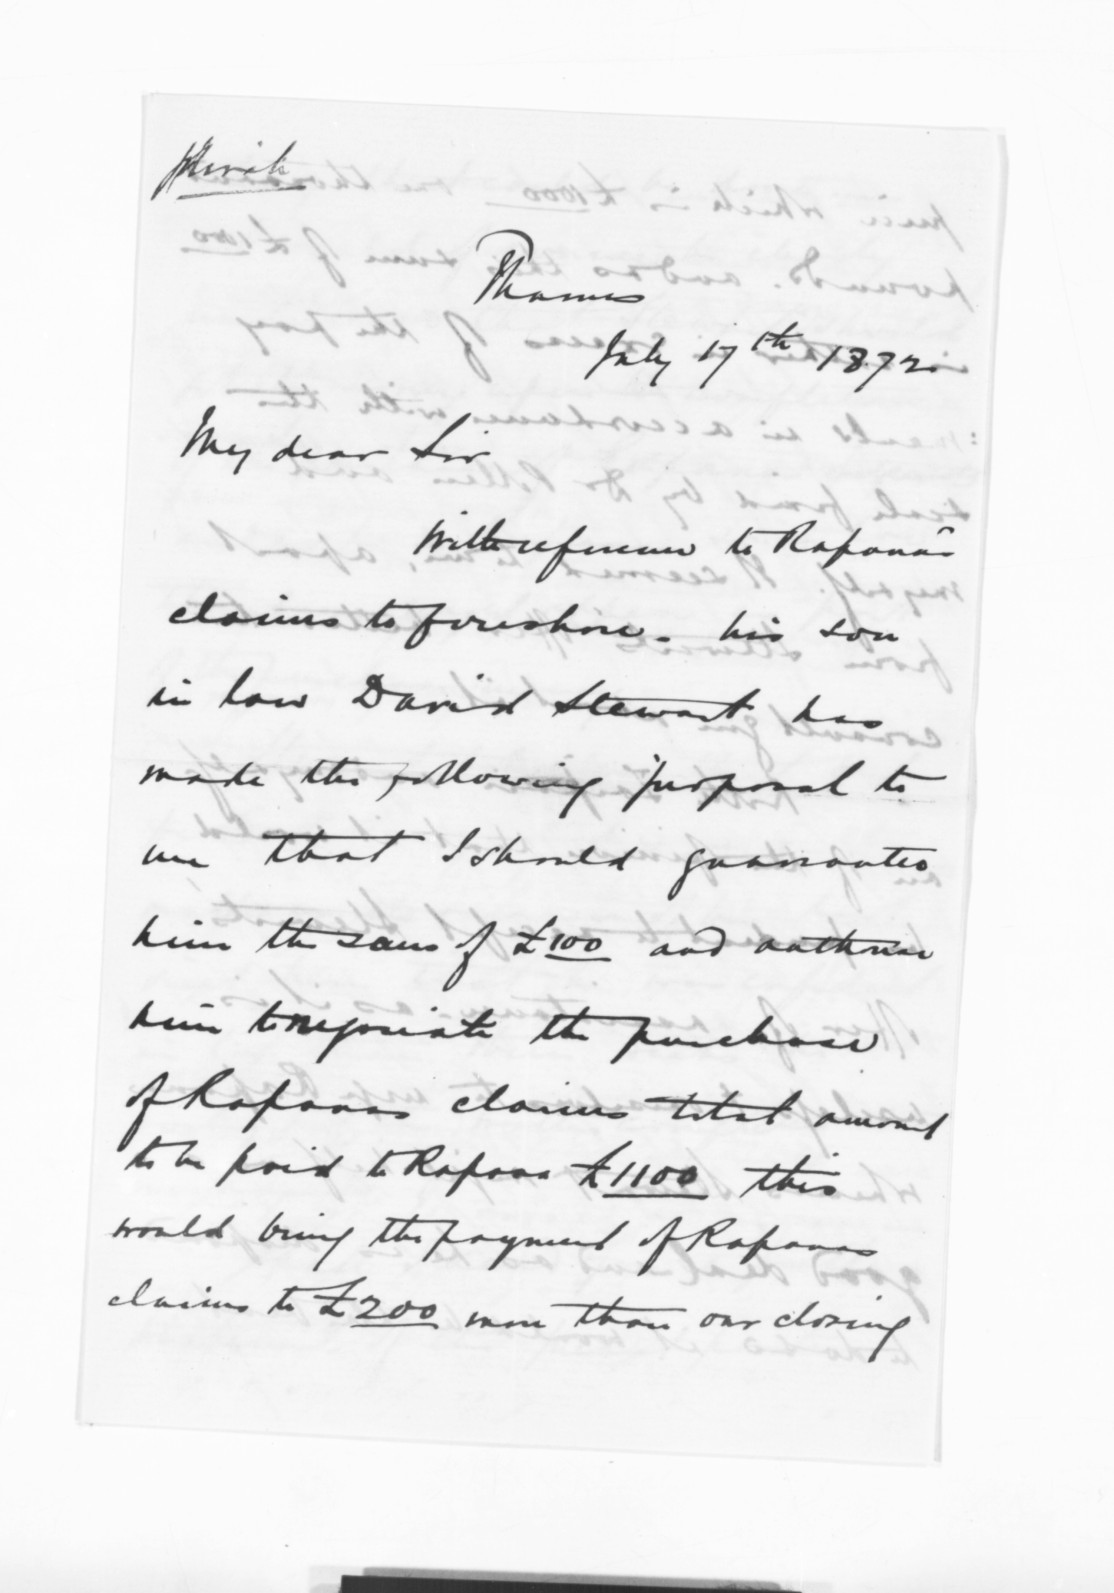 Private
Thames
July 17th 1872.
My dear Sir
With reference to Rapana's
claims to foreshore. his son
in law David Stewart has
made the following proposal to
me that I should guarantee
him the sum of £100 and authorise
him to negociate the purchase
of Rapanas claims total amount
to be paid to Rapana £1100 this
would bring the payment of Rapanas
claims to £200 more than our closing